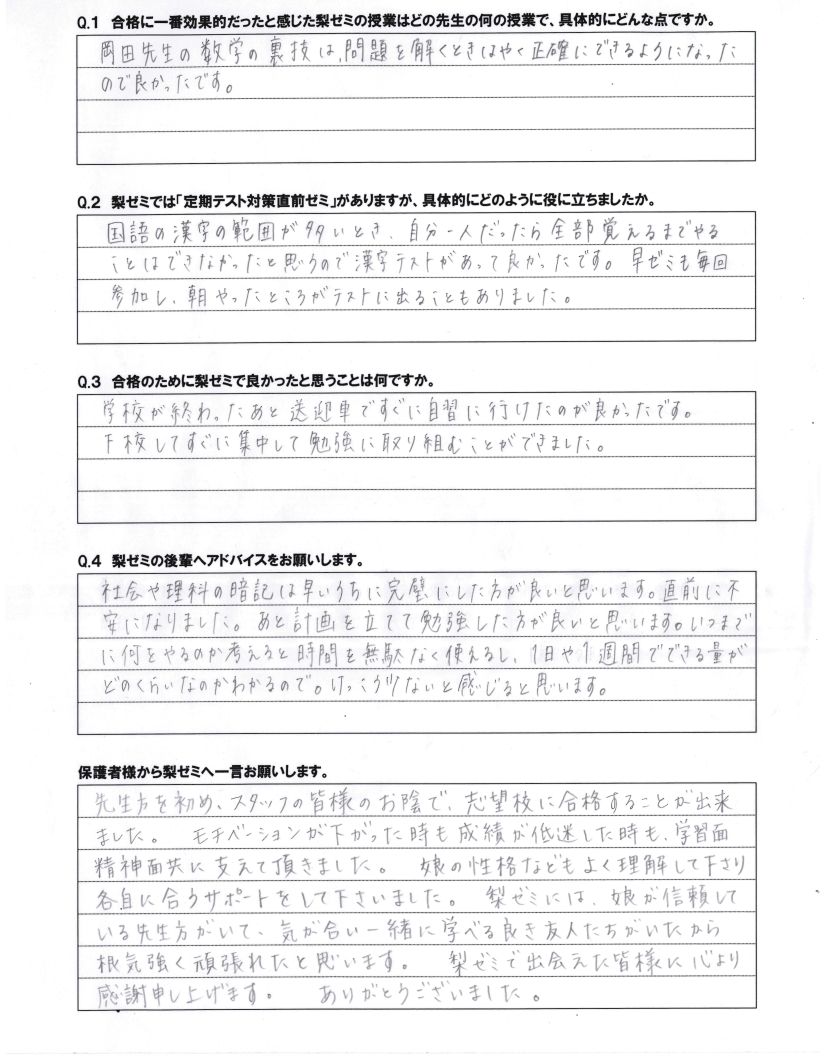 Q.1 合格に一番効果的だったと感じた梨ゼミの授業はどの先生の何の授業で、具体的にどんな点ですか。
岡田先生の数学の裏技は、問題を解くときはやく正確にできるようになった
ので良かったです。
Q.2 梨ゼミでは「定期テスト対策直前ゼミ」がありますが、具体的にどのように役に立ちましたか。
国語の漢字の範囲が多いとき、自分一人だったら全部覚えるまでやる
ことはできなかったと思うので漢字テストがあって良かったです。早ゼミも毎回
参加し、朝やったところがテストに出ることもありました。
Q.3 合格のために梨ゼミで良かったと思うことは何ですか。
学校が終わったあと送迎車ですぐに自習に行けたのが良かったです。
下校してすぐに集中して勉強に取り組むことができました。
Q.4 梨ゼミの後輩へアドバイスをお願いします。
社会や理科の暗記は早いうちに完璧にした方が良いと思います。直前に不
安になりました。あと計画を立てて勉強した方が良いと思います。いつまで
に何をやるのか考えると時間を無駄なく使えるし、1日や1週間でできる量が
どのくらいなのかわかるので。けっこう少ないと感じると思います。
保護者様から梨ゼミへ一言お願いします。
先生方を初め、スタッフの皆様のお陰で、志望校に合格することが出来
ました。 モチベーションが下がった時も成績が低迷した時も、学習面
精神面共に支えて頂きました。 娘の性格などもよく理解して下さり
各自に合うサポートをして下さいました。 梨ゼミには、娘が信頼して
いる先生方がいて、気が合い一緒に学べる良き友人たちがいたから
根気強く頑張れたと思います。 梨ゼミで出会えた皆様に心より
感謝申し上げます。 ありがとうございました。